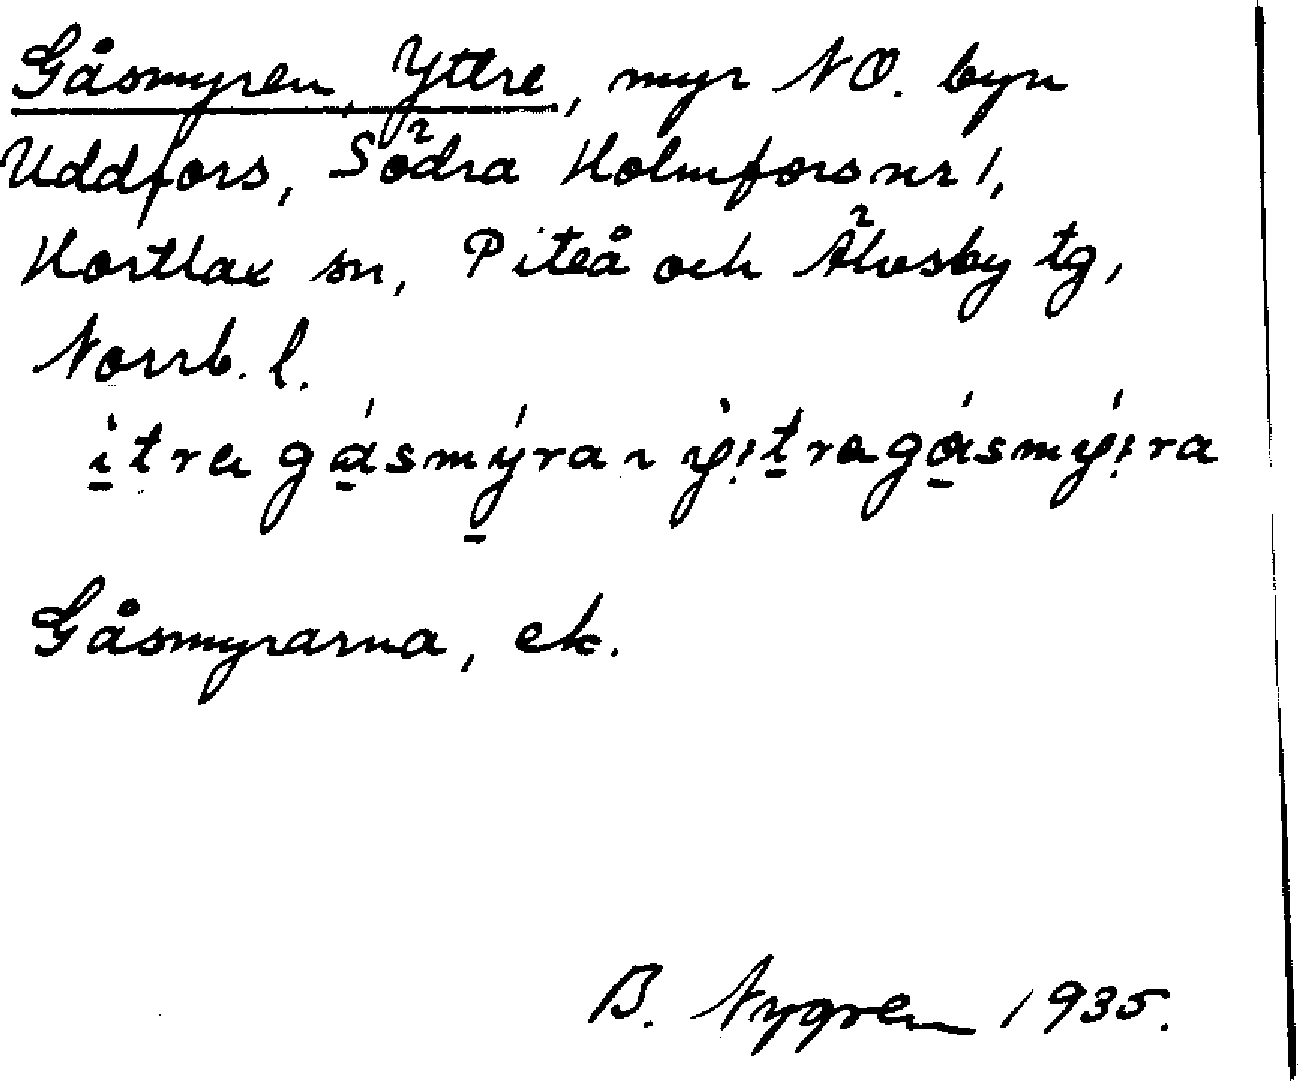 Gåsmyren, Yttre, myr NO. byn
Uddfors, Södra Holmfors nr 1,
Hortlax sn, Piteå och Älvsby tg,
Norrb. l.
ìtra gásmýra ~ ỳitragásmýira
Gåsmyrarna, ek.
B. Nygren 1935.